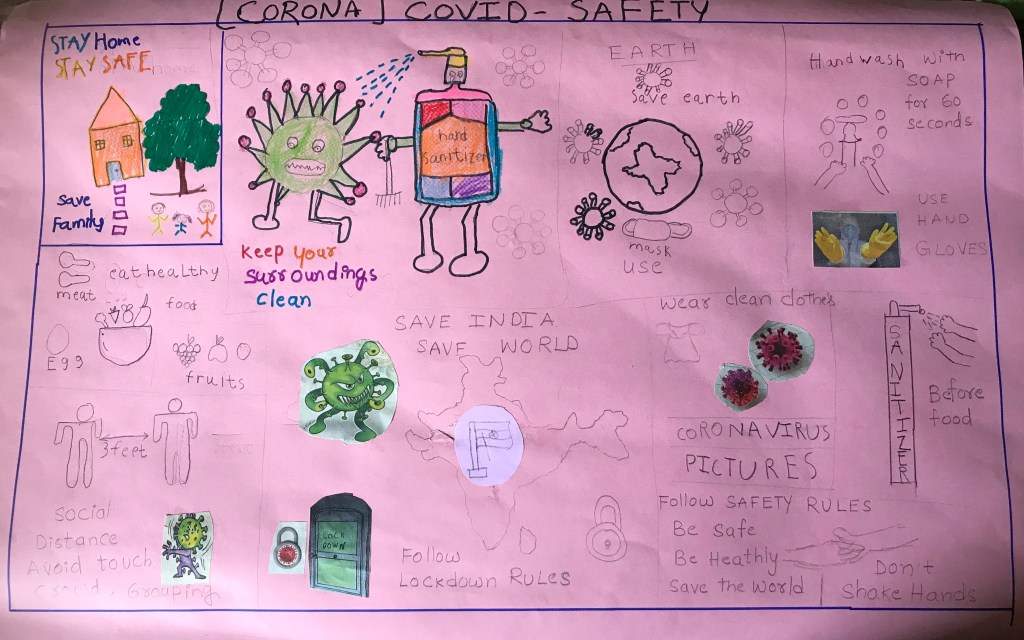 [CORONA] COVID- SAFETY
STAY Home
STAY SAFE
home
Save
Family
hand
Sanitizer
Keep your
surroundings
clean
EARTH
Save earth
mask
use
Handwash with
SOAP
for 60
seconds
USE
HAND
GLOVES
eat healthy
meat
food
Egg
fruits
3feet
Social
Distance
Avoid touch
Crowd, Grouping
SAVE INDIA
SAVE WORLD
LOCK
DOWN
Follow
Lockdown RULES
wear clean clothes
CORONAVIRUS
PICTURES
SANITIZER
Before
food
Follow SAFETY RULES
Be safe
Be Heathly
Save the World
Don't
Shake Hands